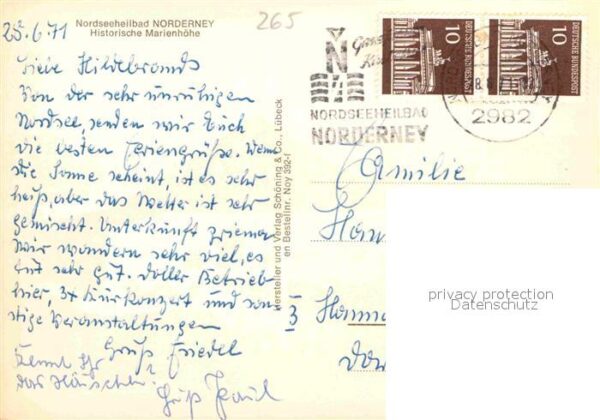 Nordseeheilbad NORDERNEY
Historische Marienhöhe
265
25.6.71
Liebe Hildebrands
Von der sehr unruhigen
Nordsee, senden wir Euch
die besten Feriengrüße. Wenn
die Sonne scheint, ist es sehr
heiß, aber das Wetter ist sehr
gemischt. Unterkunft prima
Wir wandern sehr viel, es
tut sehr gut. Doller Betrieb
hier, 3x Kurkonzert und son-
stige Veranstaltungen
Gruß Friedel
Kennt Ihr
das Häuschen?
Gruß
Hersteller und Verlag Schöning & Co., Lübeck
en Bestellnr. Noy 392-f
N
NORDSEEHEILBAD
NORDERNEY
DEUTSCHE BUNDESPOST
10
DEUTSCHE BUNDESPOST
10
2982
Familie
3
privacy protection
Datenschutz